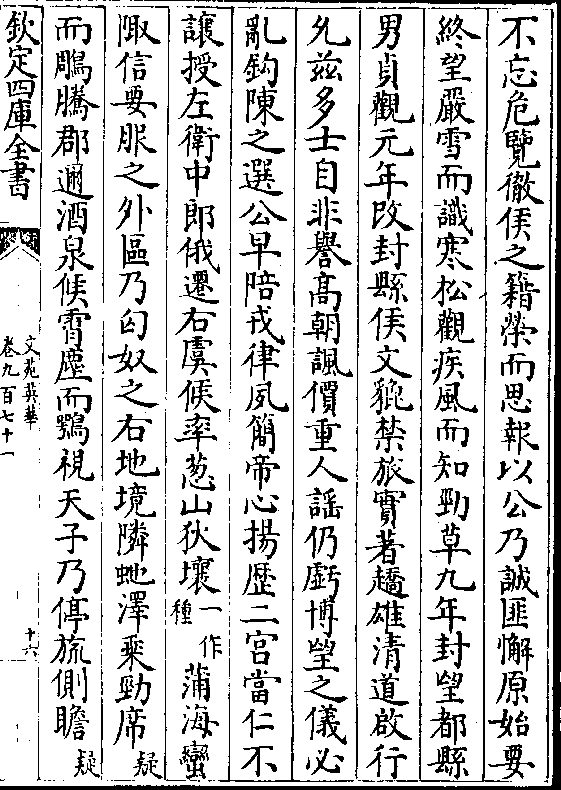 不忘危覽徹侯之籍榮而思報以公乃誠匪懈原始要
終望嚴雪而識寒松觀疾風而知勁草九年封望都縣
男貞觀元年改封縣侯文䝙禁旅實著趫雄清道啟行
允兹多士自非譽髙朝諷價重人謡仍虧博望之儀必
亂鈎陳之選公早陪戎律夙簡帝心揚歴二宫當仁不
讓授左衛中郎俄遷右虞候率葱山狄壤一作種蒲海蠻
陬信要服之外區乃匈奴之右地境隣虵澤乘勁席疑
而鵰騰郡邇酒泉候霄塵而鶚視天子乃停旒側瞻疑
欽定四庫全書
文苑英華
卷九百七十一
十六